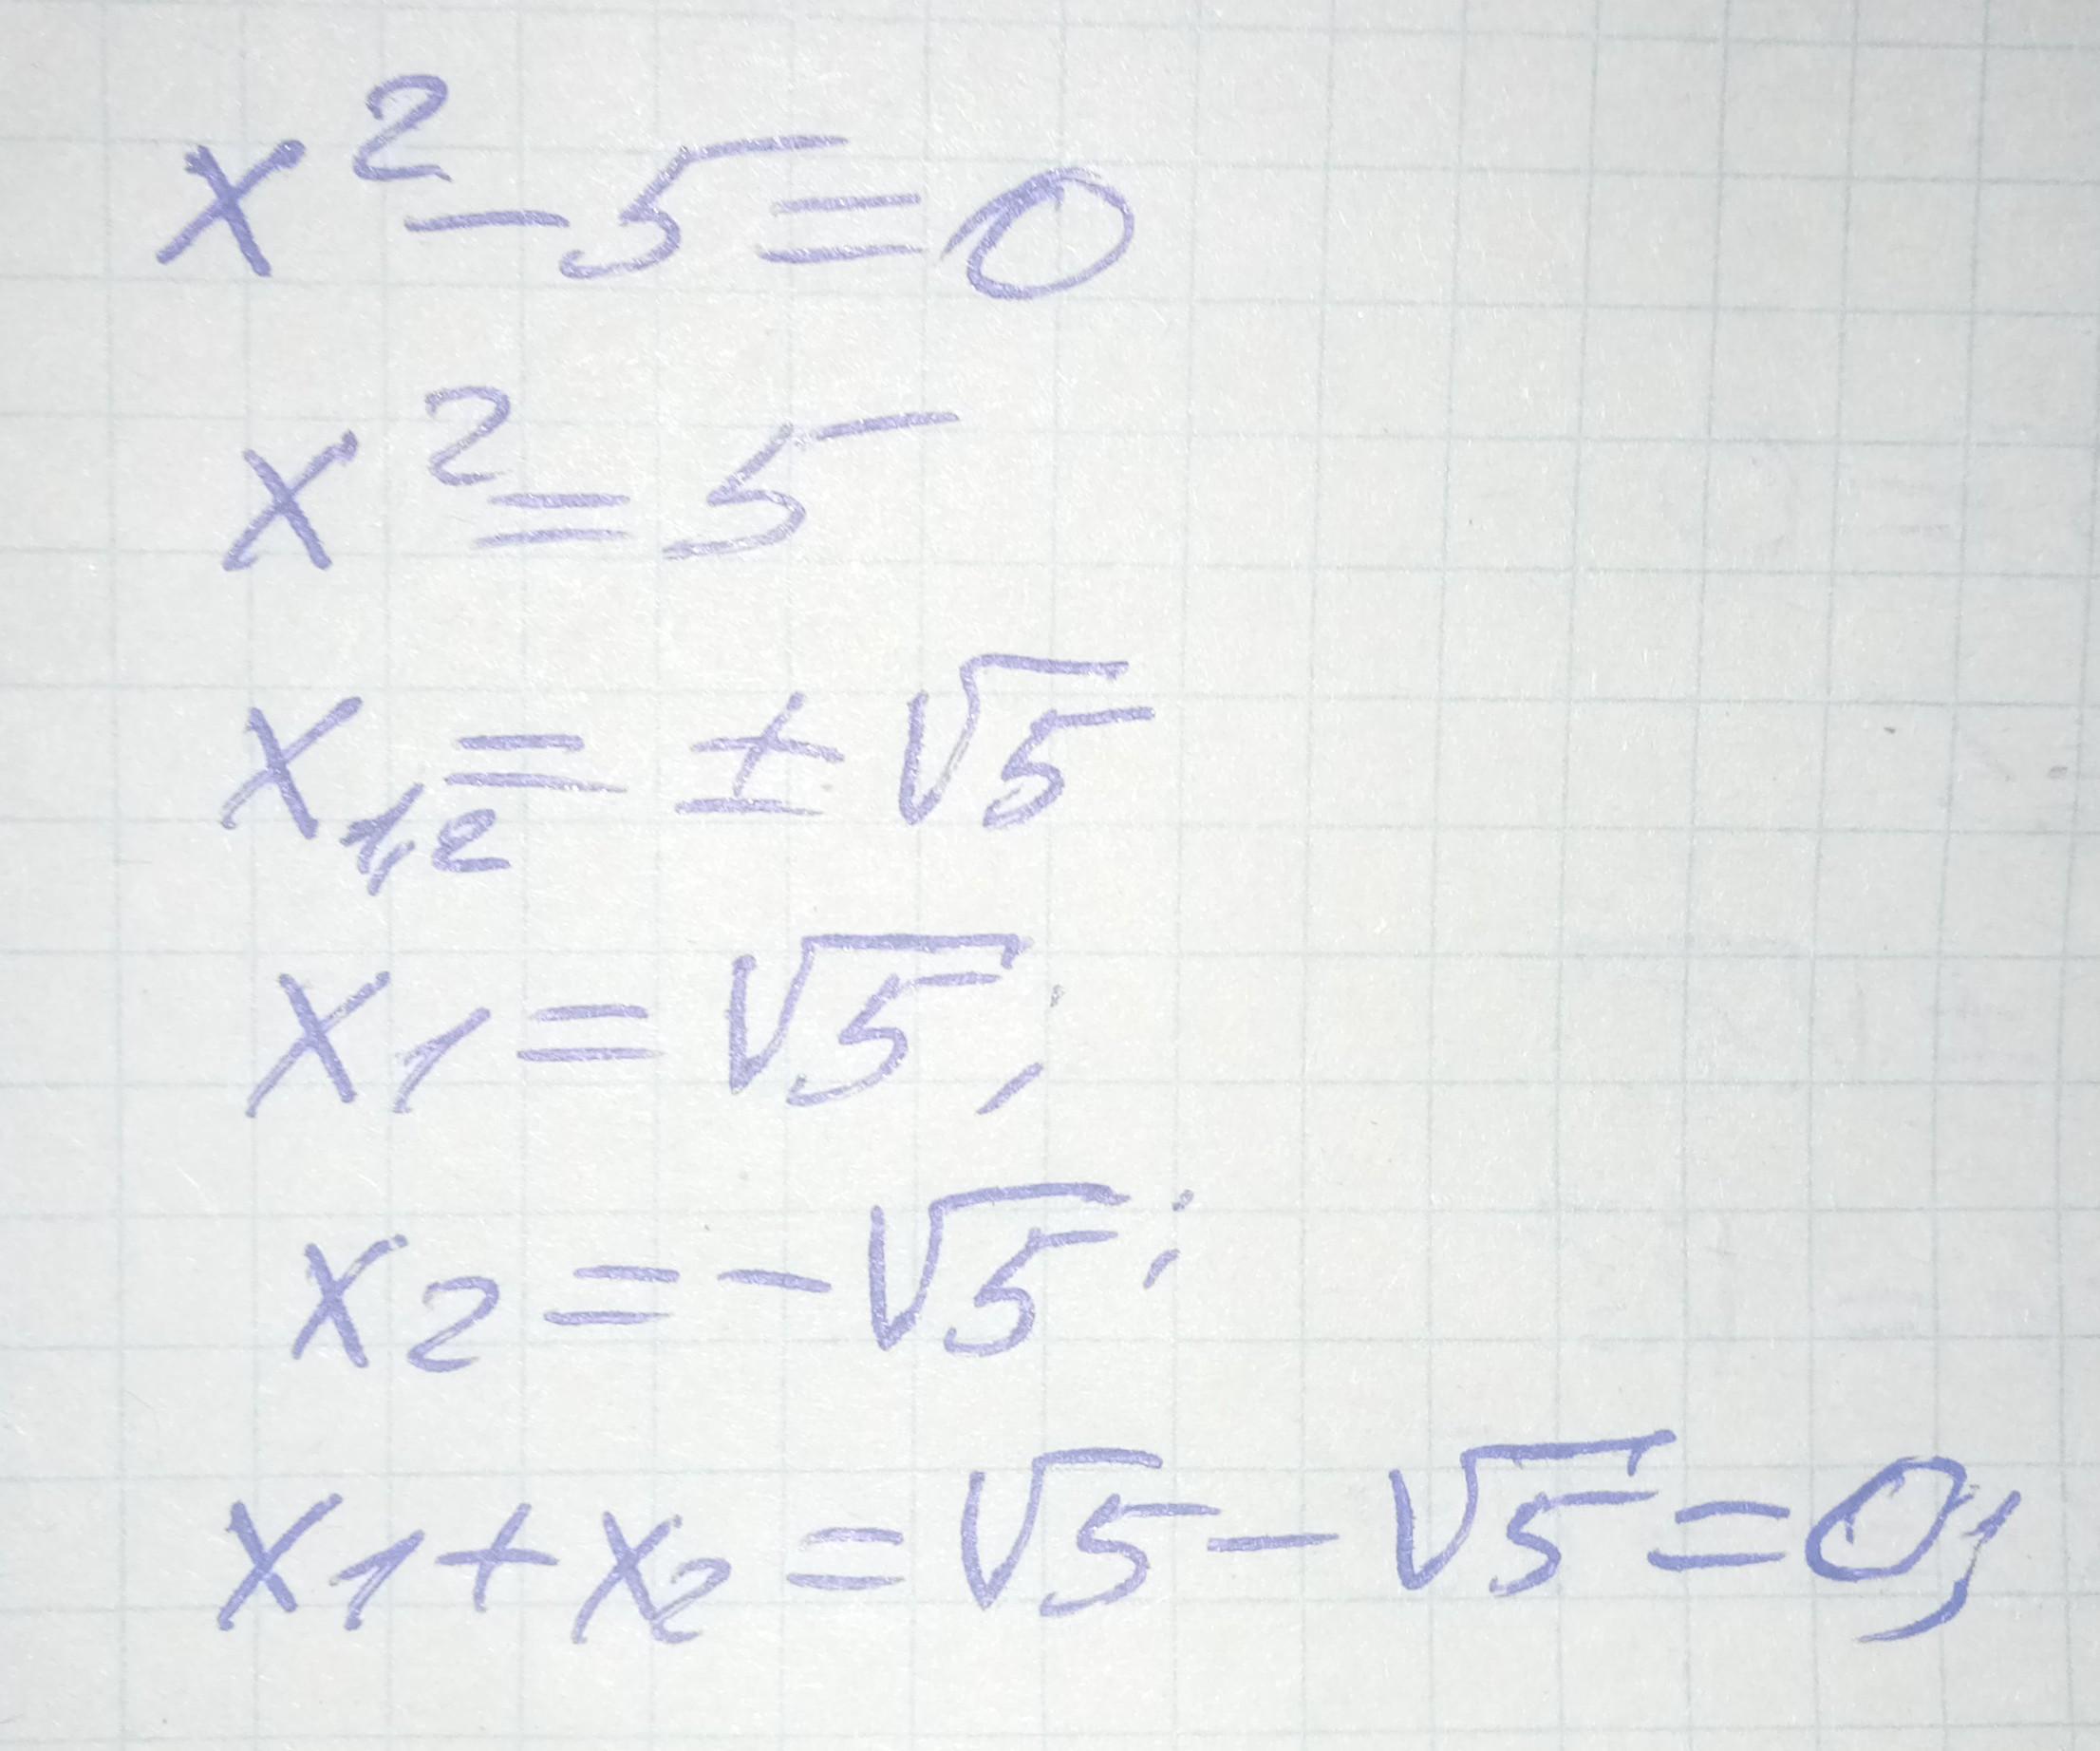 x² - 5 = 0
x² = 5
x₁,₂ = ± √5
x₁ = √5;
x₂ = -√5;
x₁ + x₂ = √5 - √5 = 0;